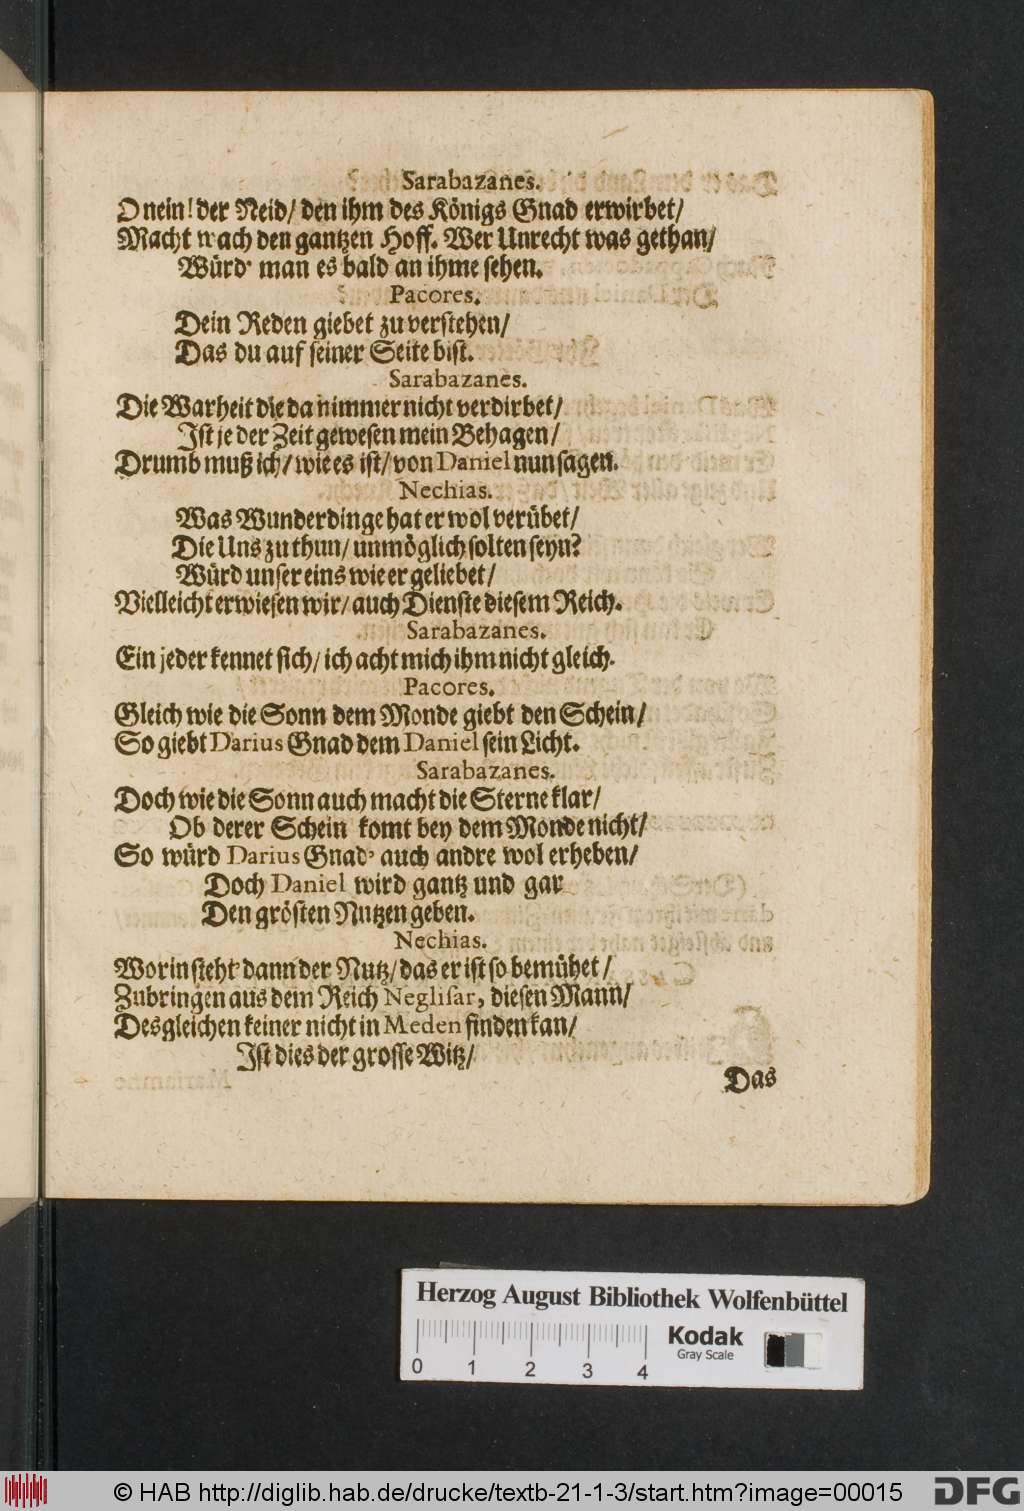 Sarabazanes.
O nein! der Neid/ den ihm des Königs Gnad erwirbet/
Macht wach den gantzen Hoff. Wer Unrecht was gethan/
Würd' man es bald an ihme sehen.
Pacores.
Dein Reden giebet zu verstehen/
Das du auf seiner Seite bist.
Sarabazanes.
Die Warheit die da nimmer nicht verdirbet/
Ist je der Zeit gewesen mein Behagen/
Drumb muß ich/ wie es ist/ von Daniel nun sagen.
Nechias.
Was Wunderdinge hat er wol verübet/
Die Uns zu thun/ unmöglich solten seyn?
Würd unser eins wie er geliebet/
Vielleicht erwiesen wir/ auch Dienste diesem Reich.
Sarabazanes.
Ein jeder kennet sich/ ich acht mich ihm nicht gleich.
Pacores.
Gleich wie die Sonn dem Monde giebt den Schein/
So giebt Darius Gnad dem Daniel sein Licht.
Sarabazanes.
Doch wie die Sonn auch macht die Sterne klar/
Ob derer Schein komt bey dem Monde nicht/
So würd Darius Gnad' auch andre wol erheben/
Doch Daniel wird gantz und gar
Den grösten Nutzen geben.
Nechias.
Worin steht' dann der Nutz/ das er ist so bemühet/
Zubringen aus dem Reich Neglisar, diesen Mann/
Desgleichen keiner nicht in Meden finden kan/
Ist dies der grosse Witz/
Das
Herzog August Bibliothek Wolfenbüttel
Kodak
Gray Scale
0 1 2 3 4
© HAB http://diglib.hab.de/drucke/textb-21-1-3/start.htm?image=00015
DFG